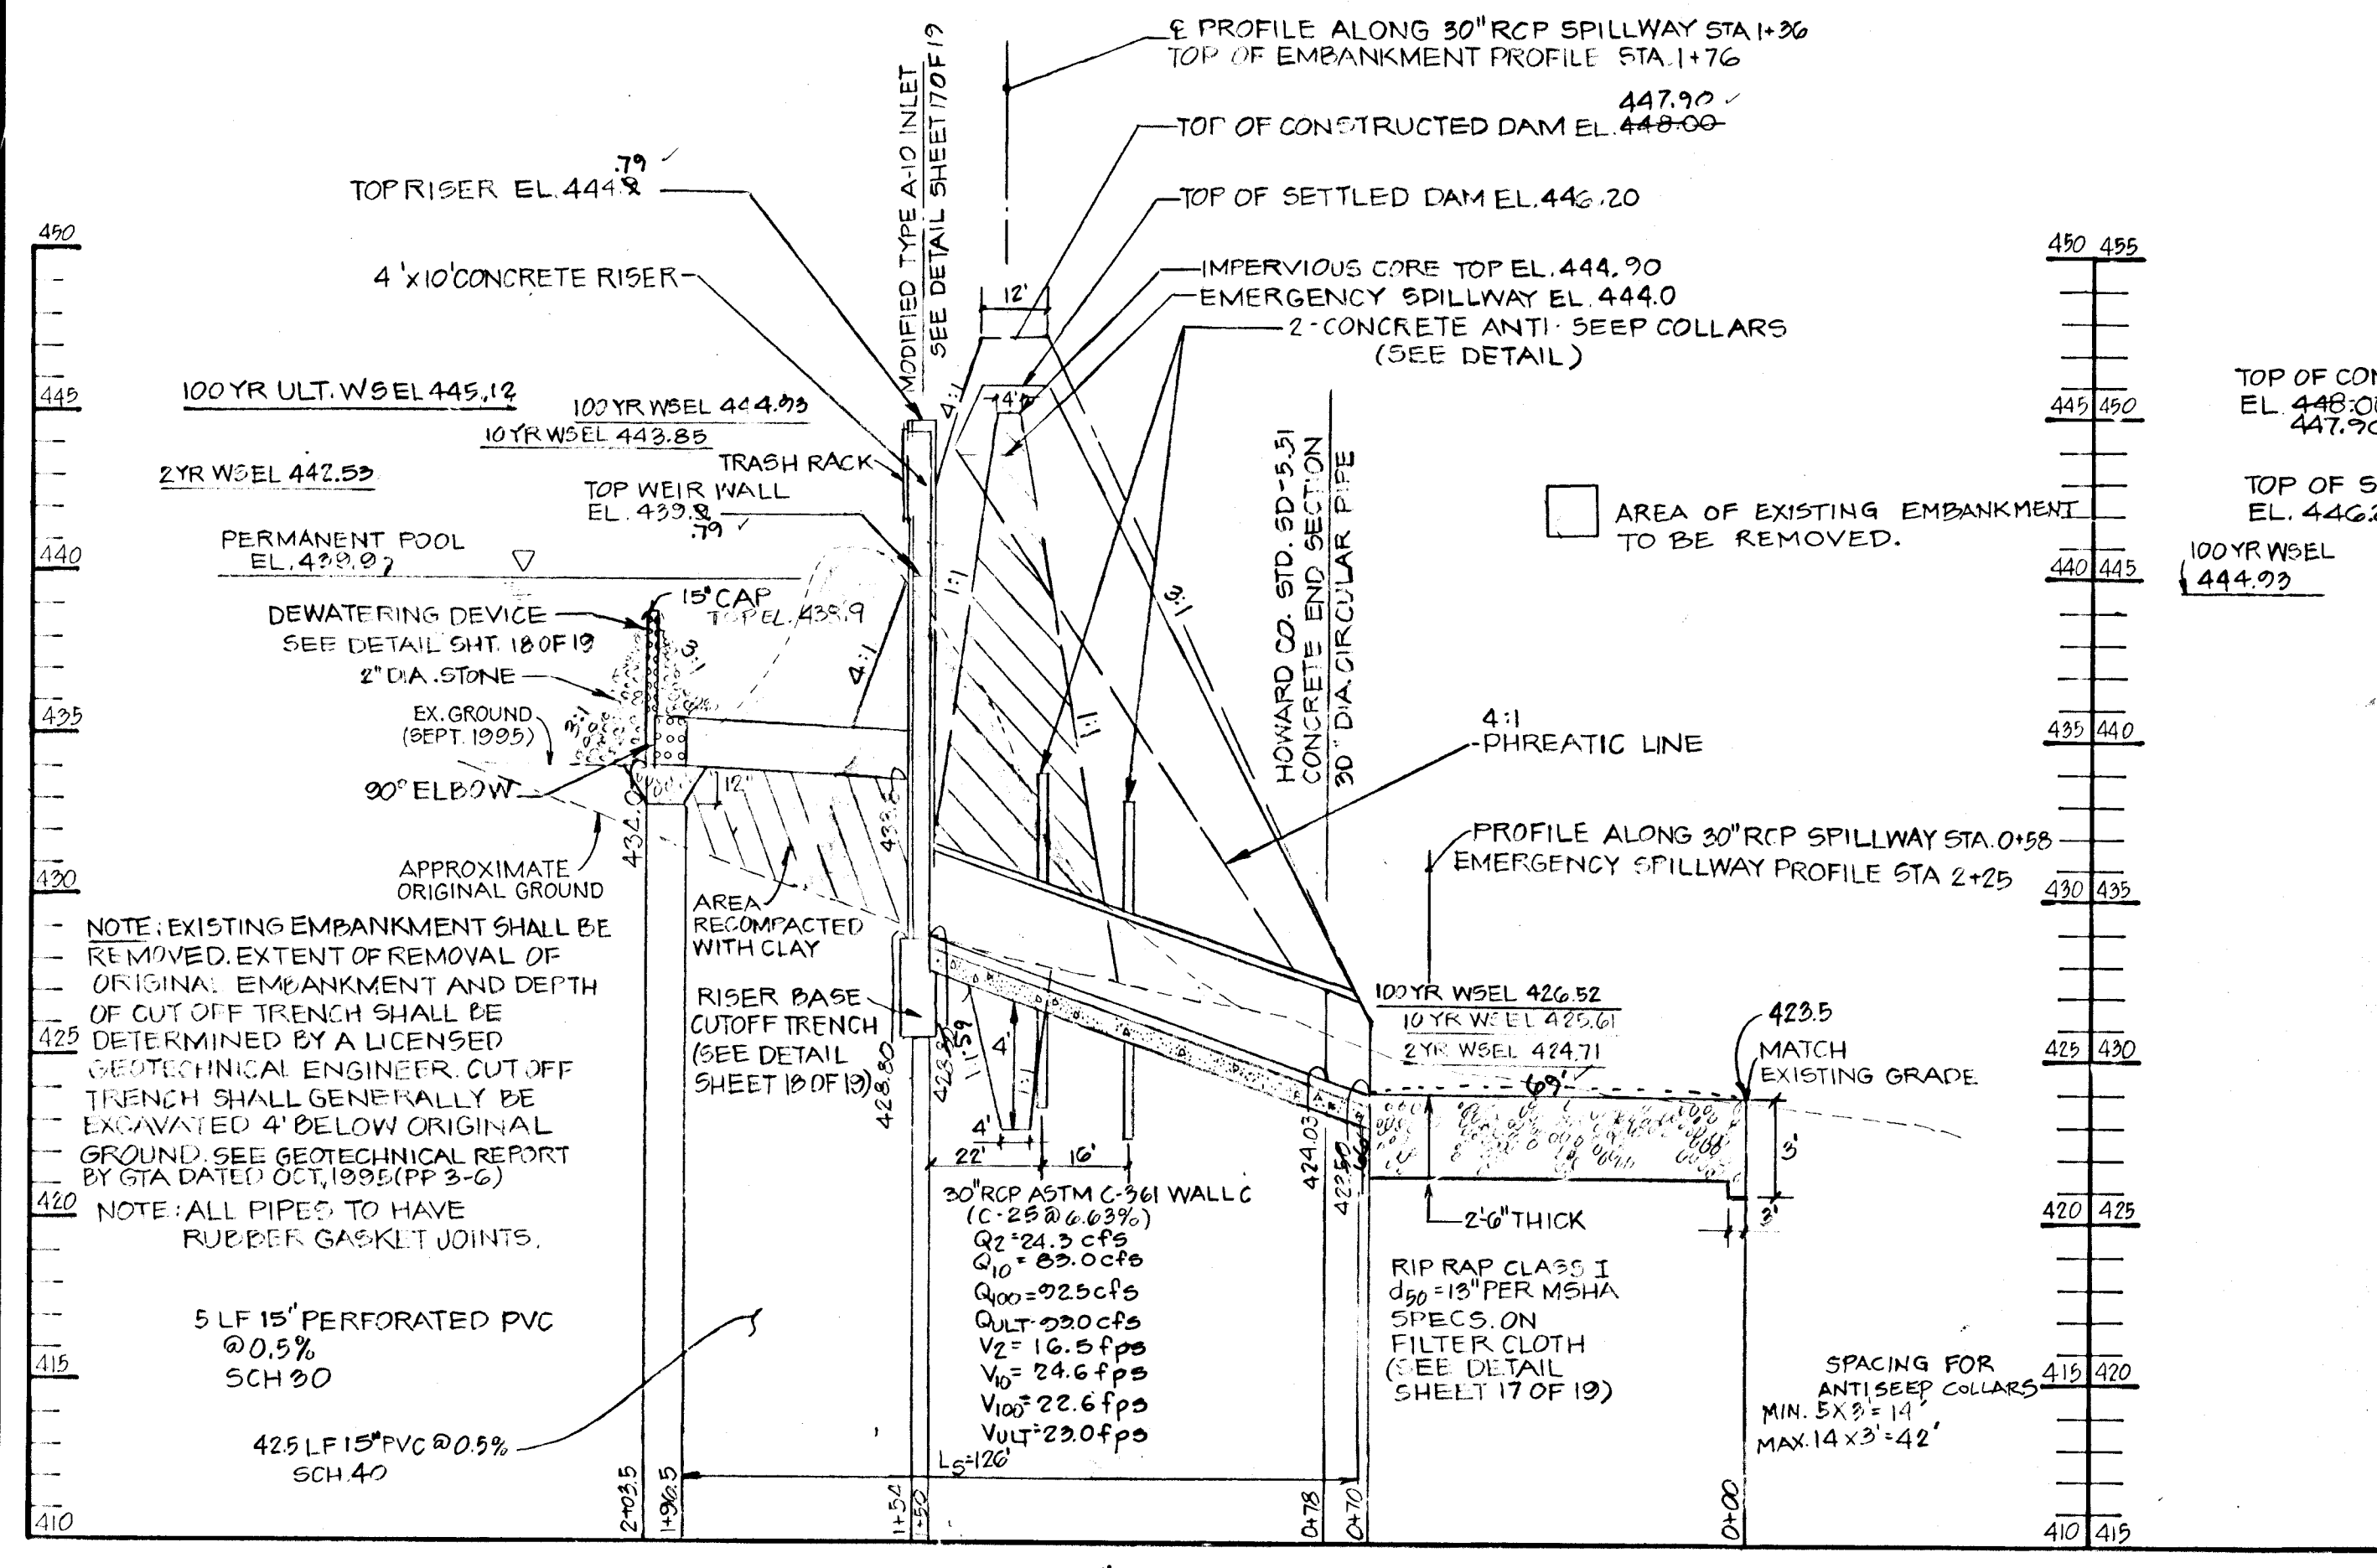 ℄ PROFILE ALONG 30" RCP SPILLWAY STA 1+36
TOP OF EMBANKMENT PROFILE STA. 1+76
447.90 ✓
TOP OF CONSTRUCTED DAM EL. 448.00
TOP OF SETTLED DAM EL. 446.20
IMPERVIOUS CORE TOP EL. 444.90
EMERGENCY SPILLWAY EL. 444.0
2-CONCRETE ANTI-SEEP COLLARS
(SEE DETAIL)
MODIFIED TYPE A-10 INLET
SEE DETAIL SHEET 17 OF 19
.79 ✓
TOP RISER EL. 444.
4'x10' CONCRETE RISER
12'
4'
4:1
100 YR ULT. WSEL 445.12
100 YR WSEL 444.93
10 YR WSEL 443.85
2 YR WSEL 442.53
TRASH RACK
TOP WEIR WALL
EL. 439.
.79 ✓
PERMANENT POOL
EL. 439.9
15" CAP
TOP EL. 438.9
DEWATERING DEVICE
SEE DETAIL SHT. 18 OF 19
2" DIA. STONE
3:1
3:1
EX. GROUND
(SEPT. 1995)
90° ELBOW
12"
4:1
1:1
1:1
3:1
434.0
APPROXIMATE
ORIGINAL GROUND
AREA
RECOMPACTED
WITH CLAY
HOWARD CO. STD. SD-5.51
CONCRETE END SECTION
30" DIA. CIRCULAR PIPE
AREA OF EXISTING EMBANKMENT
TO BE REMOVED.
4:1
PHREATIC LINE
PROFILE ALONG 30" RCP SPILLWAY STA. 0+58
EMERGENCY SPILLWAY PROFILE STA 2+25
NOTE: EXISTING EMBANKMENT SHALL BE
REMOVED. EXTENT OF REMOVAL OF
ORIGINAL EMBANKMENT AND DEPTH
OF CUT OFF TRENCH SHALL BE
DETERMINED BY A LICENSED
GEOTECHNICAL ENGINEER. CUT OFF
TRENCH SHALL GENERALLY BE
EXCAVATED 4' BELOW ORIGINAL
GROUND. SEE GEOTECHNICAL REPORT
BY GTA DATED OCT, 1995 (PP 3-6)
NOTE: ALL PIPES TO HAVE
RUBBER GASKET JOINTS.
RISER BASE
CUTOFF TRENCH
(SEE DETAIL
SHEET 18 OF 19)
428.80
.59
1:1
4'
1:1
4'
22'
16'
100 YR WSEL 426.52
10 YR WSEL 425.61
2 YR WSEL 424.71
69' ✓
423.5
MATCH
EXISTING GRADE
424.03
423.50
3'
3'
2'-6" THICK
30" RCP ASTM C-361 WALL C
(C-25 @ 6.63%)
Q2 = 24.3 cfs
Q10 = 83.0 cfs
Q100 = 92.5 cfs
QULT = 93.0 cfs
V2 = 16.5 fps
V10 = 24.6 fps
V100 = 22.6 fps
VULT = 23.0 fps
LS=126'
RIP RAP CLASS I
d50 = 13" PER MSHA
SPECS. ON
FILTER CLOTH
(SEE DETAIL
SHEET 17 OF 19)
SPACING FOR
ANTISEEP COLLARS
MIN. 5X3'= 14'
MAX. 14 x 3'=42'
5 LF 15" PERFORATED PVC
@ 0.5%
SCH 30
42.5 LF 15" PVC @ 0.5%
SCH. 40
2+03.5
1+96.5
1+54
1+50
0+78
0+70
0+00
450
445
440
435
430
425
420
415
410
450 455
445 450
440 445
435 440
430 435
425 430
420 425
415 420
410 415
TOP OF CON
EL. 448.0
447.90
TOP OF S
EL. 446.2
100 YR WSEL
444.93